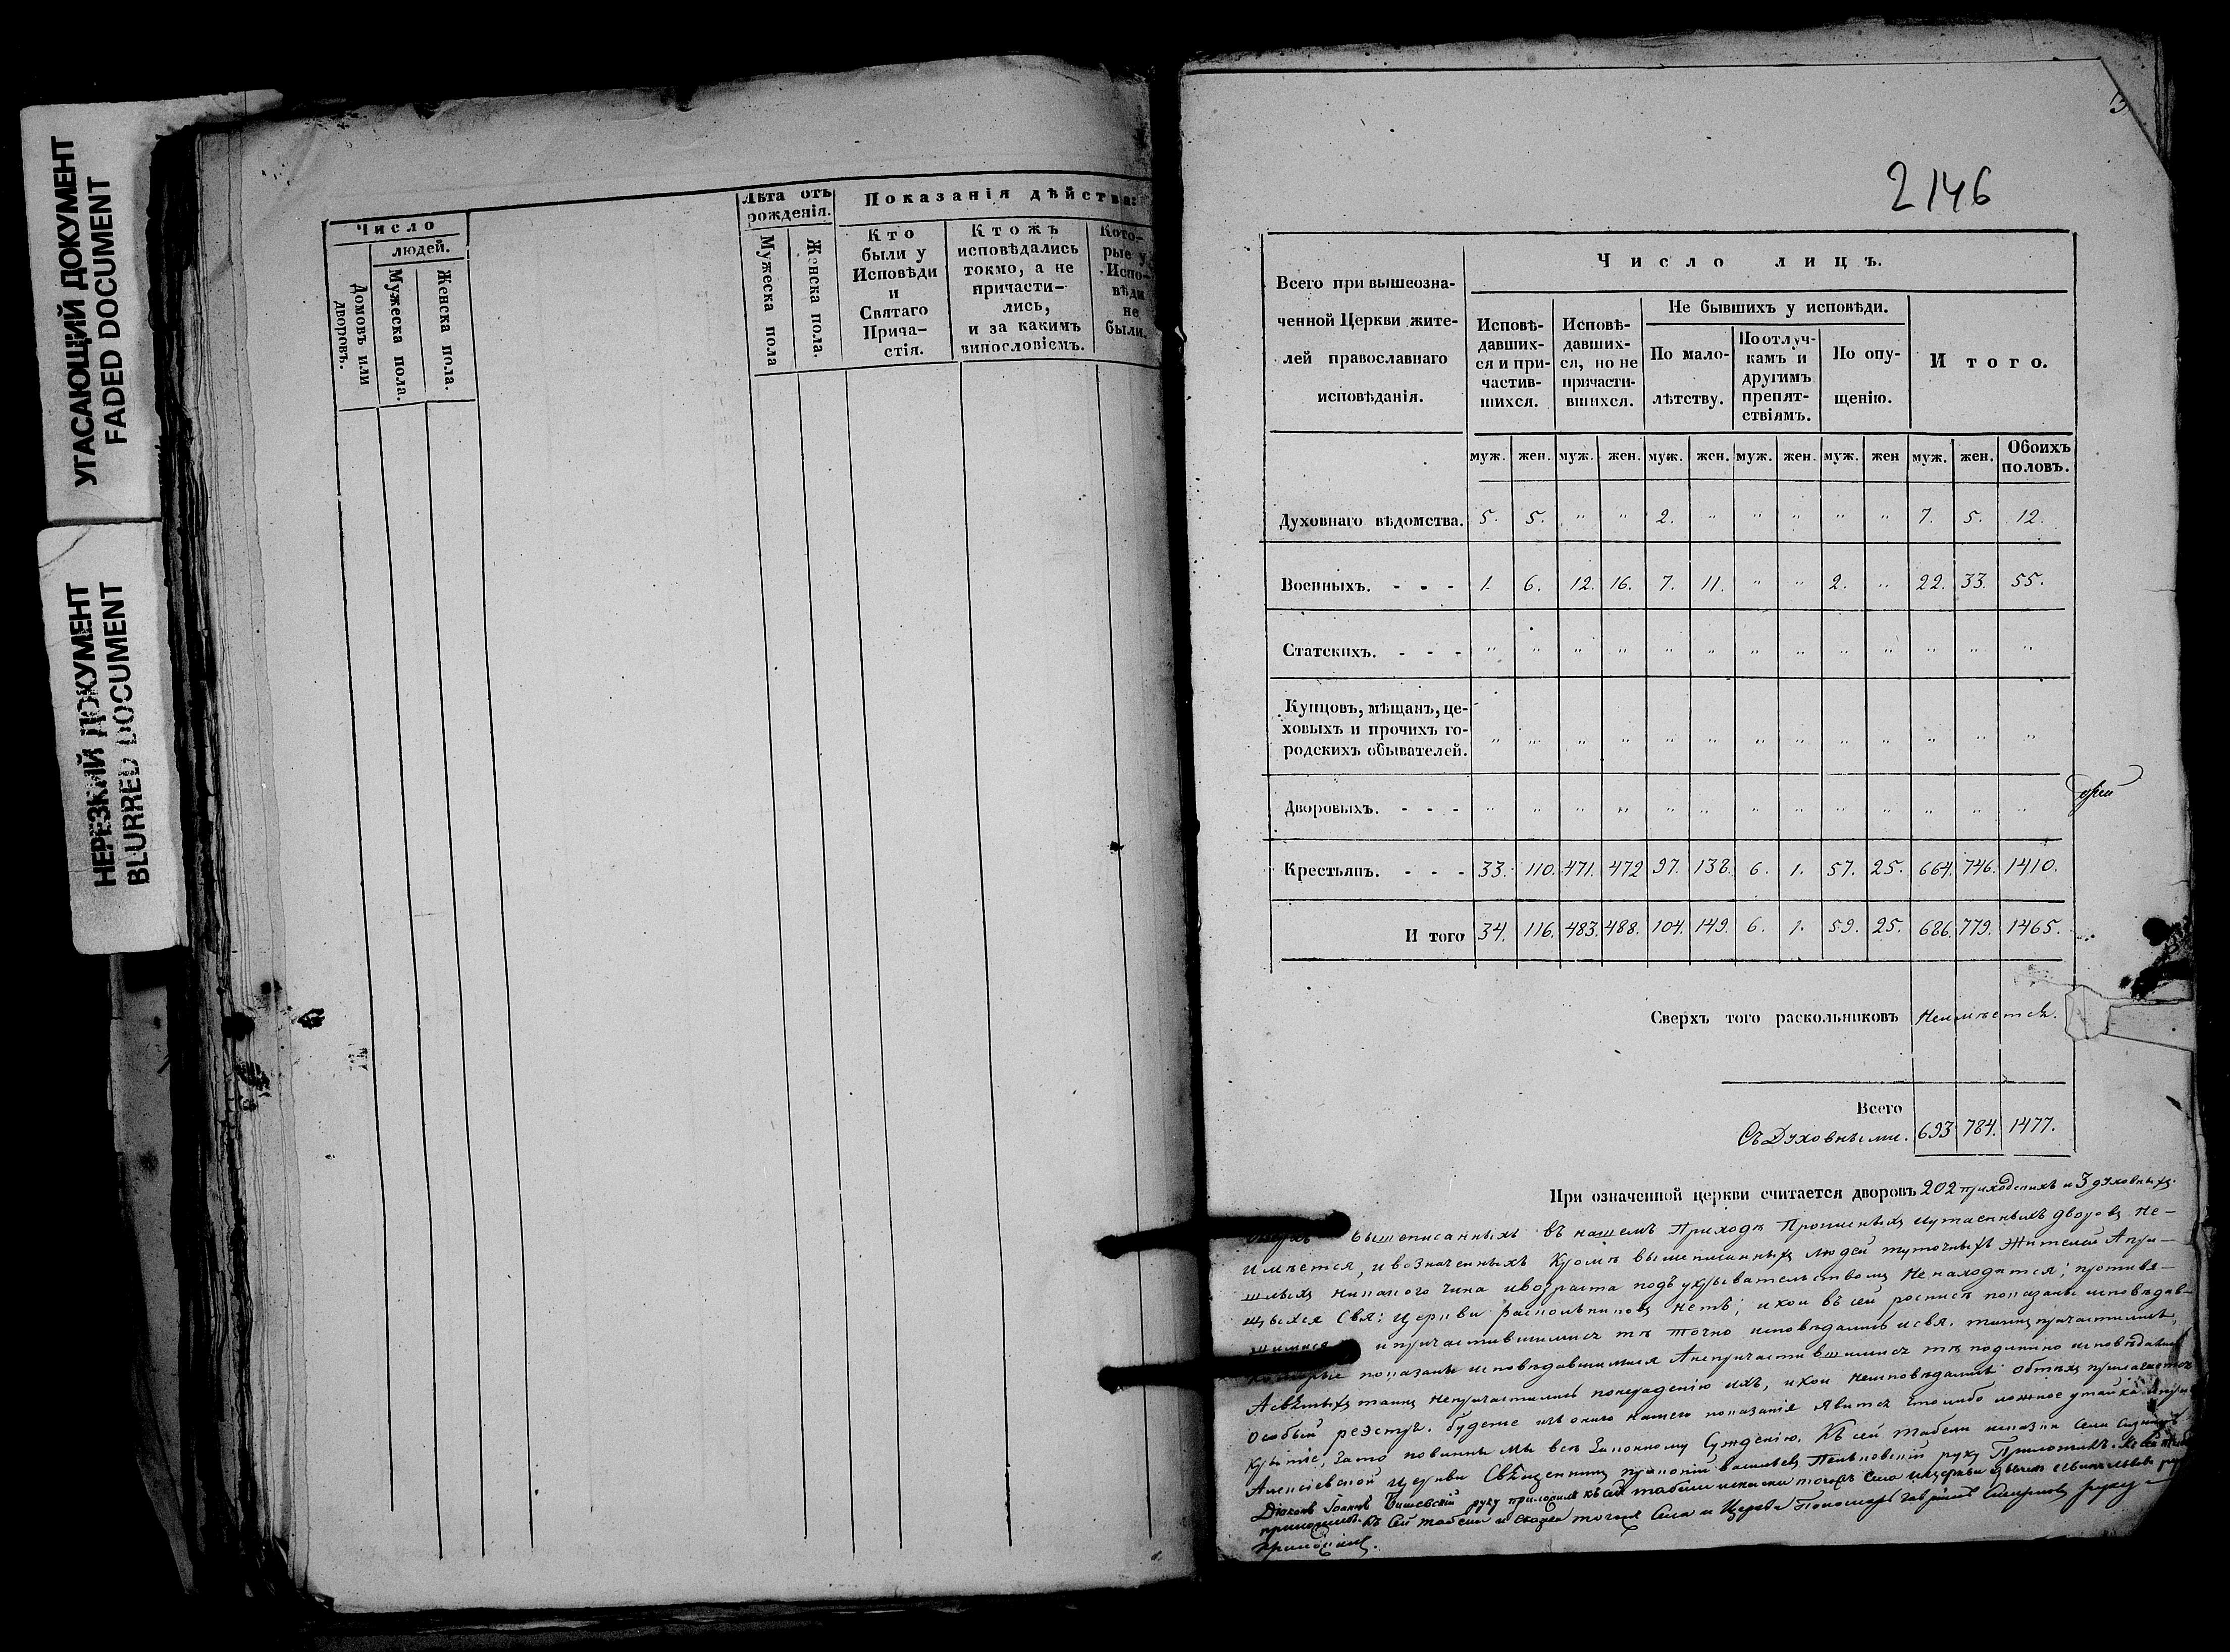 УГАСАЮЩИЙ ДОКУМЕНТ
FADED DOCUMENT
НЕРЕЗКИЙ ДОКУМЕНТ
BLURRED DOCUMENT
Число
людей.
Домовъ или дворовъ.
Мужеска пола.
Женска пола.
Лѣта отъ рожденія.
Мужеска пола
Женска пола.
Показанія дѣйства:
Кто были у Исповѣди и Святаго Прича-стія.
Ктожъ исповѣдались токмо, а не причасти-лись, и за какимъ винословіемъ.
Кото-рые у Испо-вѣди не были.
2146
Всего при вышеозна-
ченной Церкви жите-
лей православнаго
исповѣданія.
Число лицъ.
Исповѣ-давших-ся и при-частив-шихся.
Исповѣ-давших-ся, но не причасти-вшихся.
Не бывшихъ у исповѣди.
По мало-лѣтству.
По отлуч-камъ и другимъ препят-ствіямъ.
По опу-щенію.
И того.
муж. жен. муж. жен. муж. жен. муж. жен. муж. жен муж. жен. Обоихъ половъ.
Духовнаго вѣдомства. 5. 5. " " 2. " " " " " 7. 5. 12.
Военныхъ. - - - 1. 6. 12. 16. 7. 11. " " 2. " 22. 33. 55.
Статскихъ. - - - " " " " " " " " " " " " "
Купцовъ, мѣщанъ, це-
ховыхъ и прочихъ го-
родскихъ обывателей. " " " " " " " " " " " " "
Дворовыхъ. - - - " " " " " " " " " " " " "
Крестьянъ. - - - 33. 110. 471. 472 97. 138. 6. 1. 57. 25. 664. 746. 1410.
И того 34. 116. 483. 488. 104. 149. 6. 1. 59. 25. 686. 779. 1465.
Сверхъ того раскольниковъ Неимѣется.
Всего
Съ Духовными. 693 784. 1477.
При означенной церкви считается дворовъ 202 приходскихъ и 3 духовныхъ.
вышеписанныхъ въ нашемъ Приходѣ Прописныхъ и утаенныхъ дворовъ не-
имѣется, и возначенныхъ Кромѣ вышеписанныхъ людей туточныхъ Жителей А при-
шлыхъ никакого чина и возраста подъ укрывательствомъ Ненаходится; противя-
щихся Свя: Церкви раскольниковъ нетъ; и кои въ сей росписи показаны исповѣдав-
шимися и причастившимися тѣ точно исповѣдались и свя. таинъ причастились,
Которые показаны исповѣдавшимися А непричастившимися тѣ подлинно исповѣдались
А святыхъ таинъ Непричастились понерадѣнію ихъ, и кои Неисповѣдались обтѣхъ прилагается
особый реэстръ. будеже изъ онаго нашего показанія Явится что либо ложное утайка
крытіе, зато повинны мы всѣ Законному Сужденію. Къ сей табели
Алексіевской церкви Священникъ руку Приложилъ.
Діаконъ Іоаннъ руку приложилъ къ сей табели
приложилъ. Къ сей табели тогожъ Села и Церкви Пономарь Гавріилъ Смирновъ руку
приложилъ.